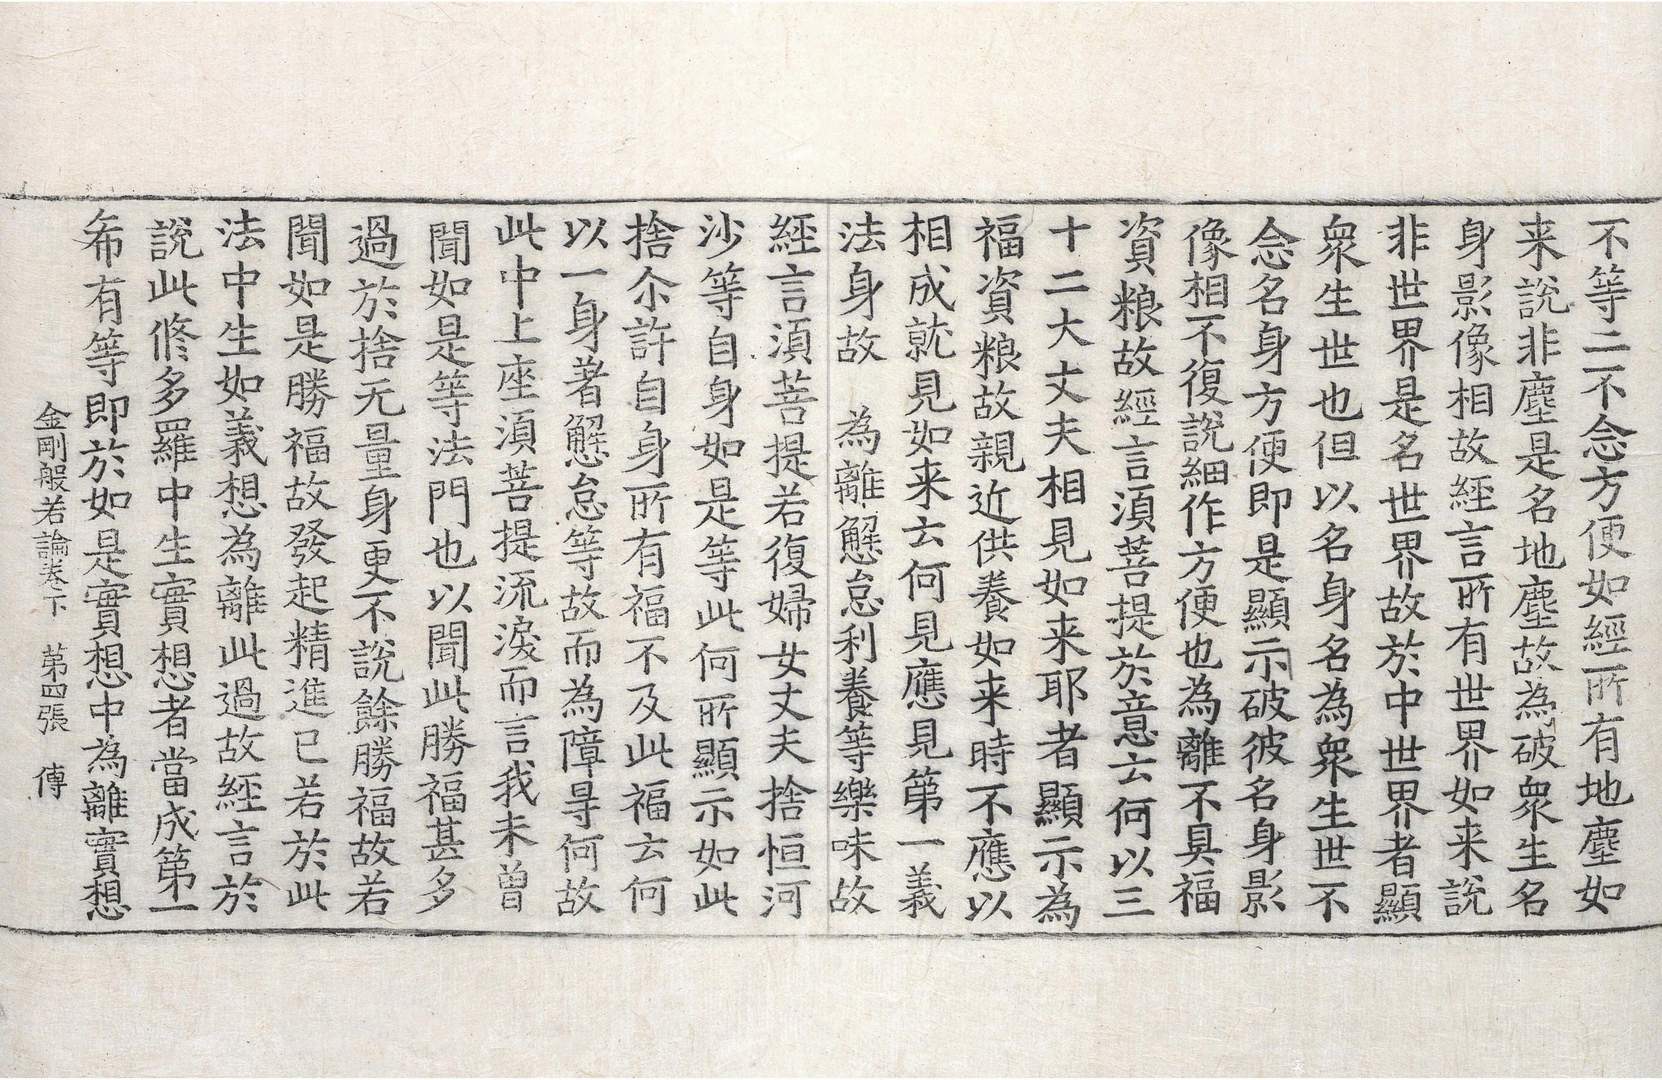 不等二不念方便如經所有地塵如
来說非塵是名地塵故為破衆生名
身影像相故經言所有世界如来說
非世界是名世界故於中世界者顯
衆生世也但以名身名為衆生世不
念名身方便即是顯示破彼名身影
像相不復說細作方便也為離不具福
資粮故經言湏菩提於意云何以三
十二大丈夫相見如来耶者顯示為
福資粮故親近供養如来時不應以
相成就見如来云何見應見第一義
法身故　為離懈怠利養等樂味故
經言湏菩提若復婦女丈夫捨恒河
沙等自身如是等此何所顯示如此
捨尒許自身所有福不及此福云何
以一身著懈怠等故而為障㝵何故
此中上座湏菩提流淚而言我未曾
聞如是等法門也以聞此勝福甚多
過於捨无量身更不說餘勝福故若
聞如是勝福故發起精進已若於此
法中生如義想為離此過故經言於
說此修多羅中生實想者當成第一
希有等即於如是實想中為離實想
金剛般若論卷下　第四張　傳